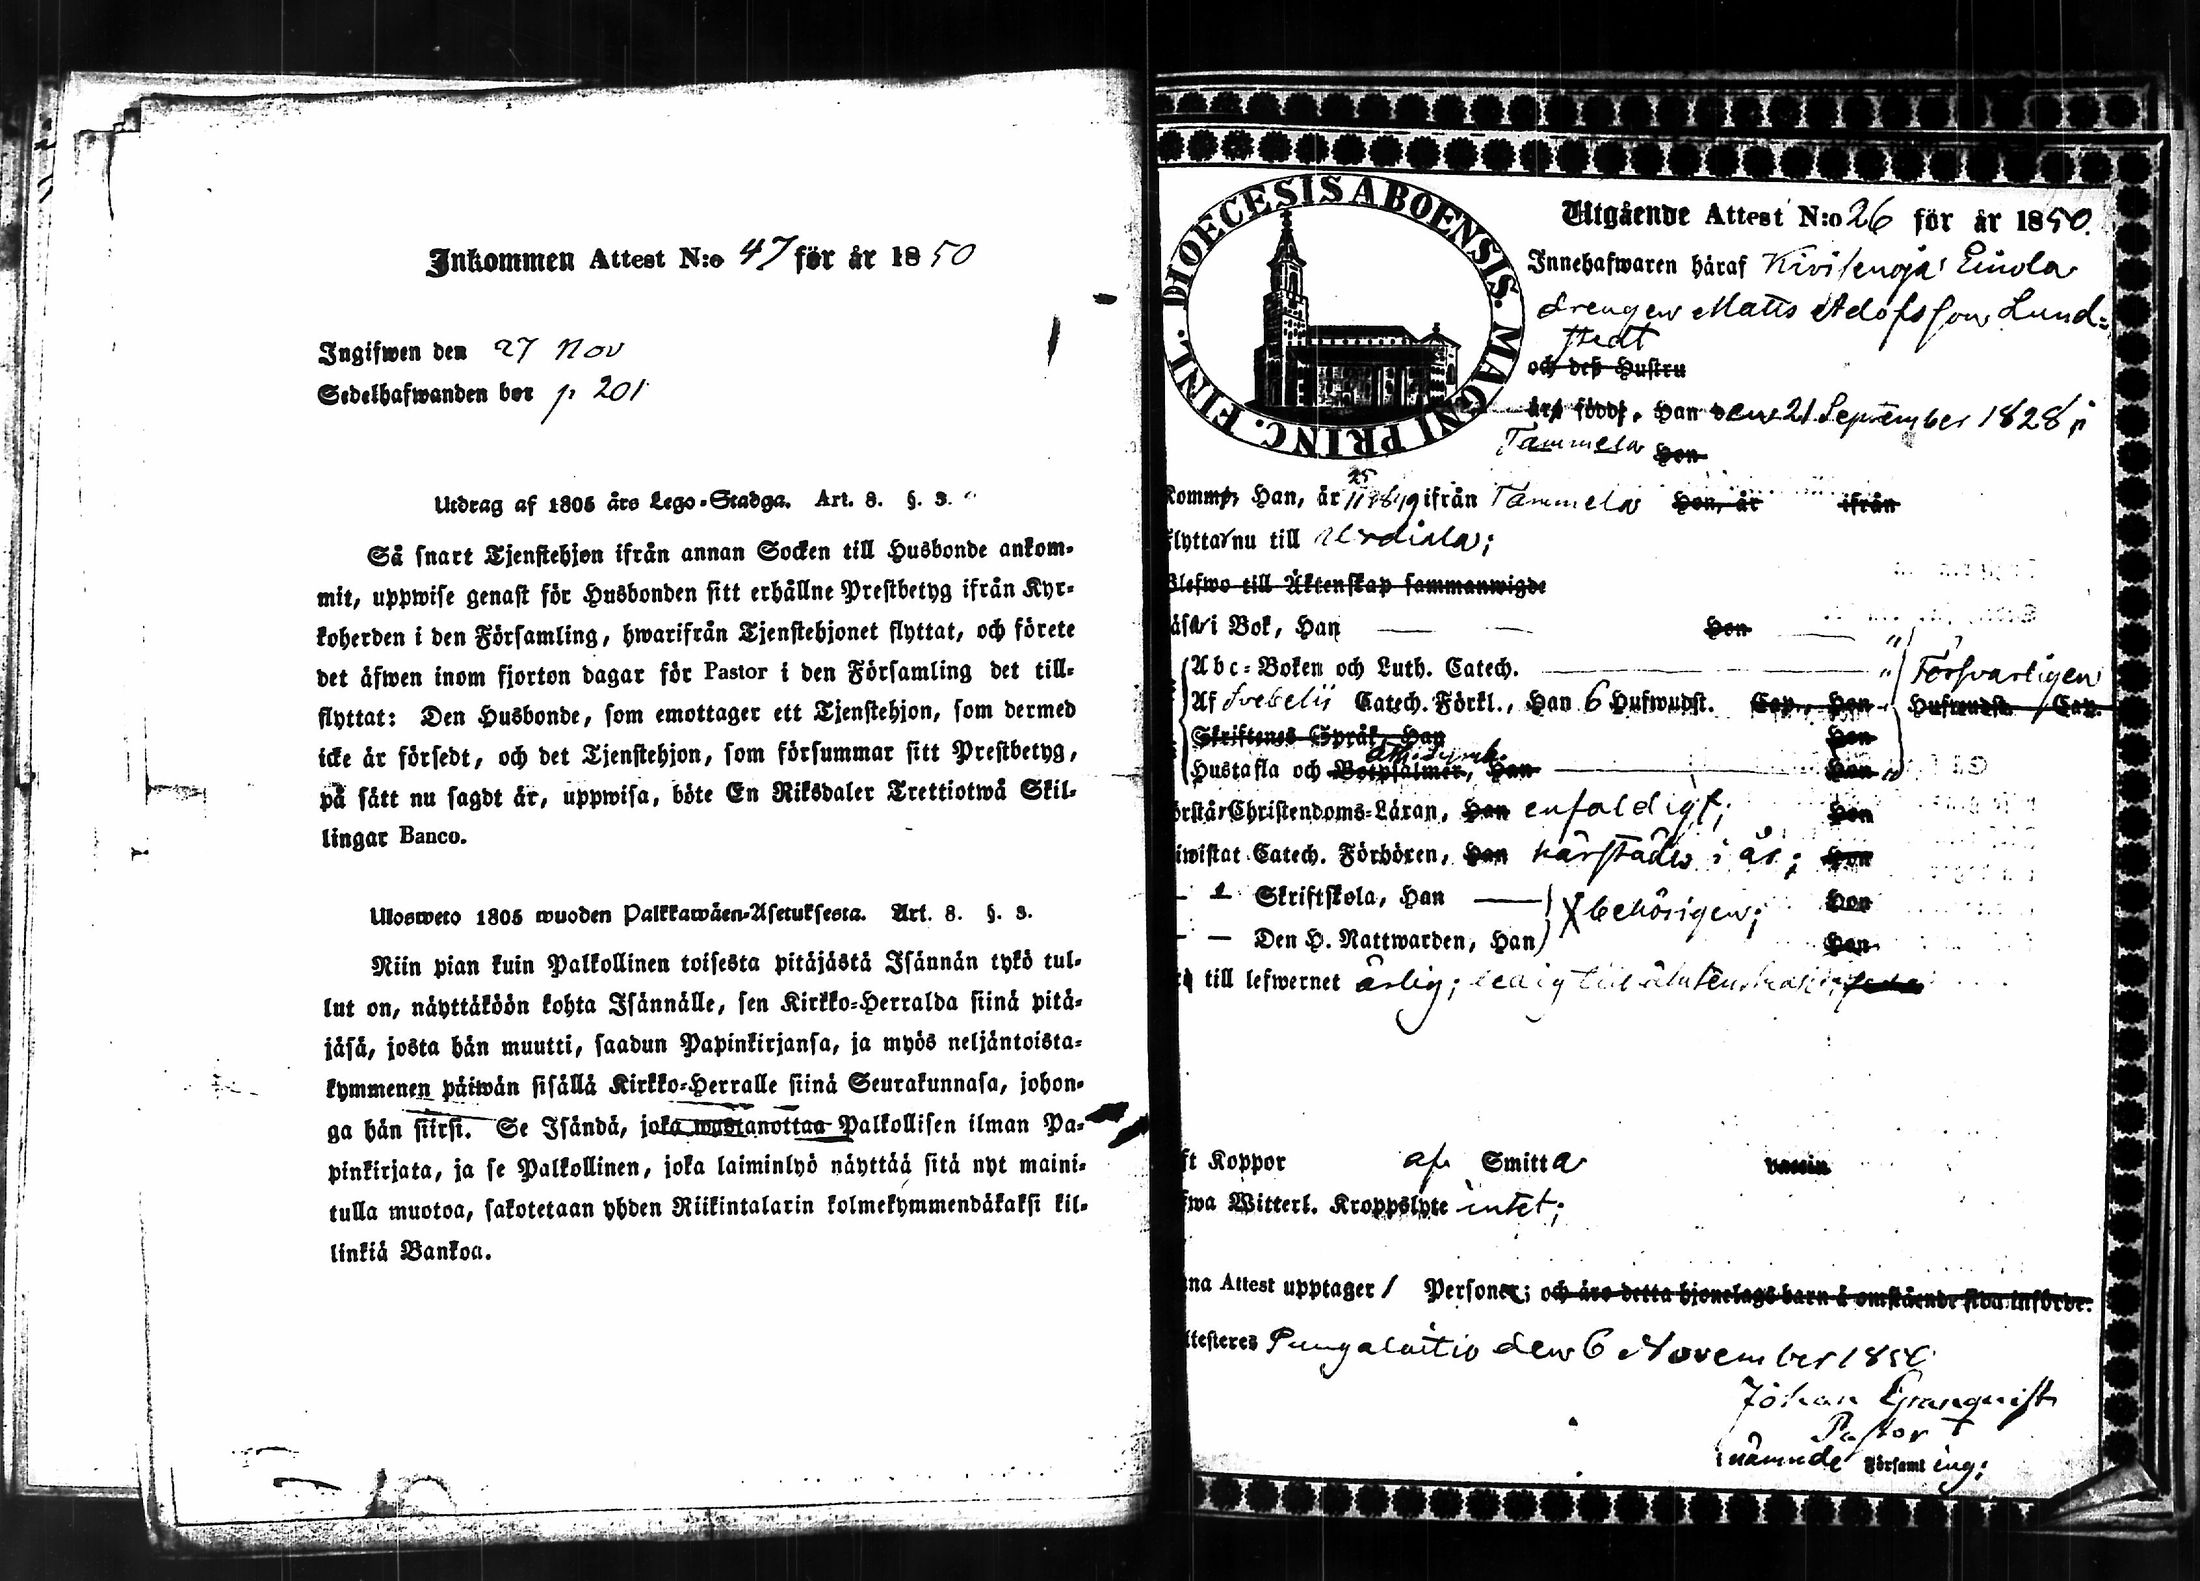 Inkommen Attest N:o 47 för år 1850
Ingifwen den 27 Nov
Sedelhafwanden bor p 201
Utdrag af 1805 års Lego-Stadga. Art. 8. §. 3.
Så snart Tjenstehjon ifrån annan Socken till Husbonde ankom-
mit, uppwise genast för Husbonden sitt erhållne Prestbetyg ifrån Kyr-
koherden i den Församling, hwarifrån Tjenstehjonet flyttat, och förete
det äfwen inom fjorton dagar för Pastor i den Församling det till-
flyttat: Den Husbonde, som emottager ett Tjenstehjon, som dermed
icke är försedt, och det Tjenstehjon, som försummar sitt Prestbetyg,
på sätt nu sagdt är, uppwisa, böte En Riksdaler Trettiotwå Skil-
lingar Banco.
Ulosweto 1805 wuoden Palkkawäen-Asetuksesta. Art. 8. §. 3.
Niin pian kuin Palkollinen toisesta pitäjästä Isännän tykö tul-
lut on, näyttäköön kohta Isännälle, sen Kirkko-Herralda siinä pitä-
jäsä, josta hän muutti, saadun Papinkirjansa, ja myös neljäntoista-
kymmenen päiwän sisällä Kirkko-Herralle siinä Seurakunnasa, johon-
ga hän siirsi. Se Isändä, joka wastanottaa Palkollisen ilman Pa-
pinkirjata, ja se Palkollinen, joka laiminlyö näyttää sitä nyt maini-
tulla muotoa, sakotetaan yhden Riikintalarin kolmekymmendäkaksi kil-
linkiä Bankoa.
DIOECESIS ABOENSIS. MAGNI PRINC. FINL.
Utgående Attest N:o 26 för år 1850.
Innehafwaren häraf Kivisenoja Einola
drengen Matts Adofsson Lund-
stedt
och deß Hustru
äro födde, Han den 21 September 1828 i
Tammela Hon
Komme, Han, år 25/11 1849 ifrån Tammela Hon, år ifrån
flyttar nu till Urdiala;
Blefwo till Äktenskap sammanwigde
läser i Bok, Han Hon
Abc-Boken och Luth. Catech. Försvarligen
Af Svebelii Catech. Förkl., Han 6 Hufwudst. Cap., Hon Hufwudst. Cap.
Skriftenes Språk, Han Hon
Hustafla och Botpsalmer, Han Hon
Ath. Symb.
örstår Christendoms-Läran, Han enfaldigt; Hon
iwistat Catech. Förhören, Han härstädes i år; Hon
Skriftskola, Han behörigen; Hon
Den H. Nattwarden, Han Hon
till lefwernet ärlig; ledig till äktenskap;
ft Koppor af Smitta vaccin
fwa Witterl. Kroppslyte intet;
na Attest upptager 1 Personer; och äro detta hjonelags barn å omstående sida införde.
ttesteres Pungalaitio den 6 November 1850
Johan Granqvist
Pastor
i nämnde Församling;